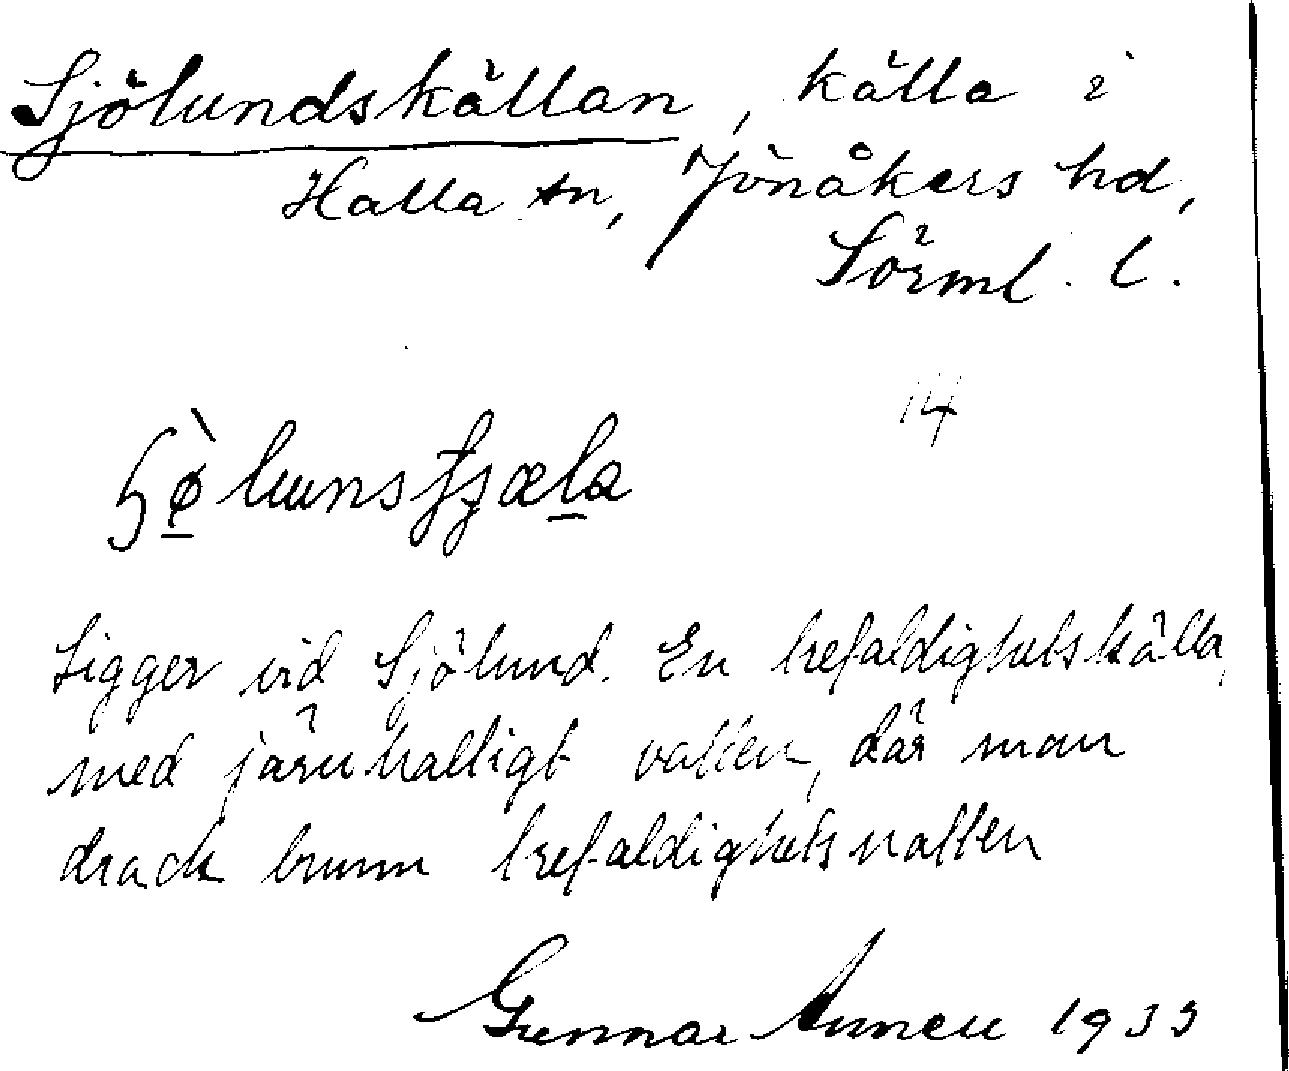 Sjölundskällan, källa i
Halla sn, Jönåkers hd,
Sörml. l.
14
Ligger vid Sjölund. En trefaldighetskälla,
med järnhaltigt vatten, där man
drack brunn trefaldighetsnatten
Gunnar 1933